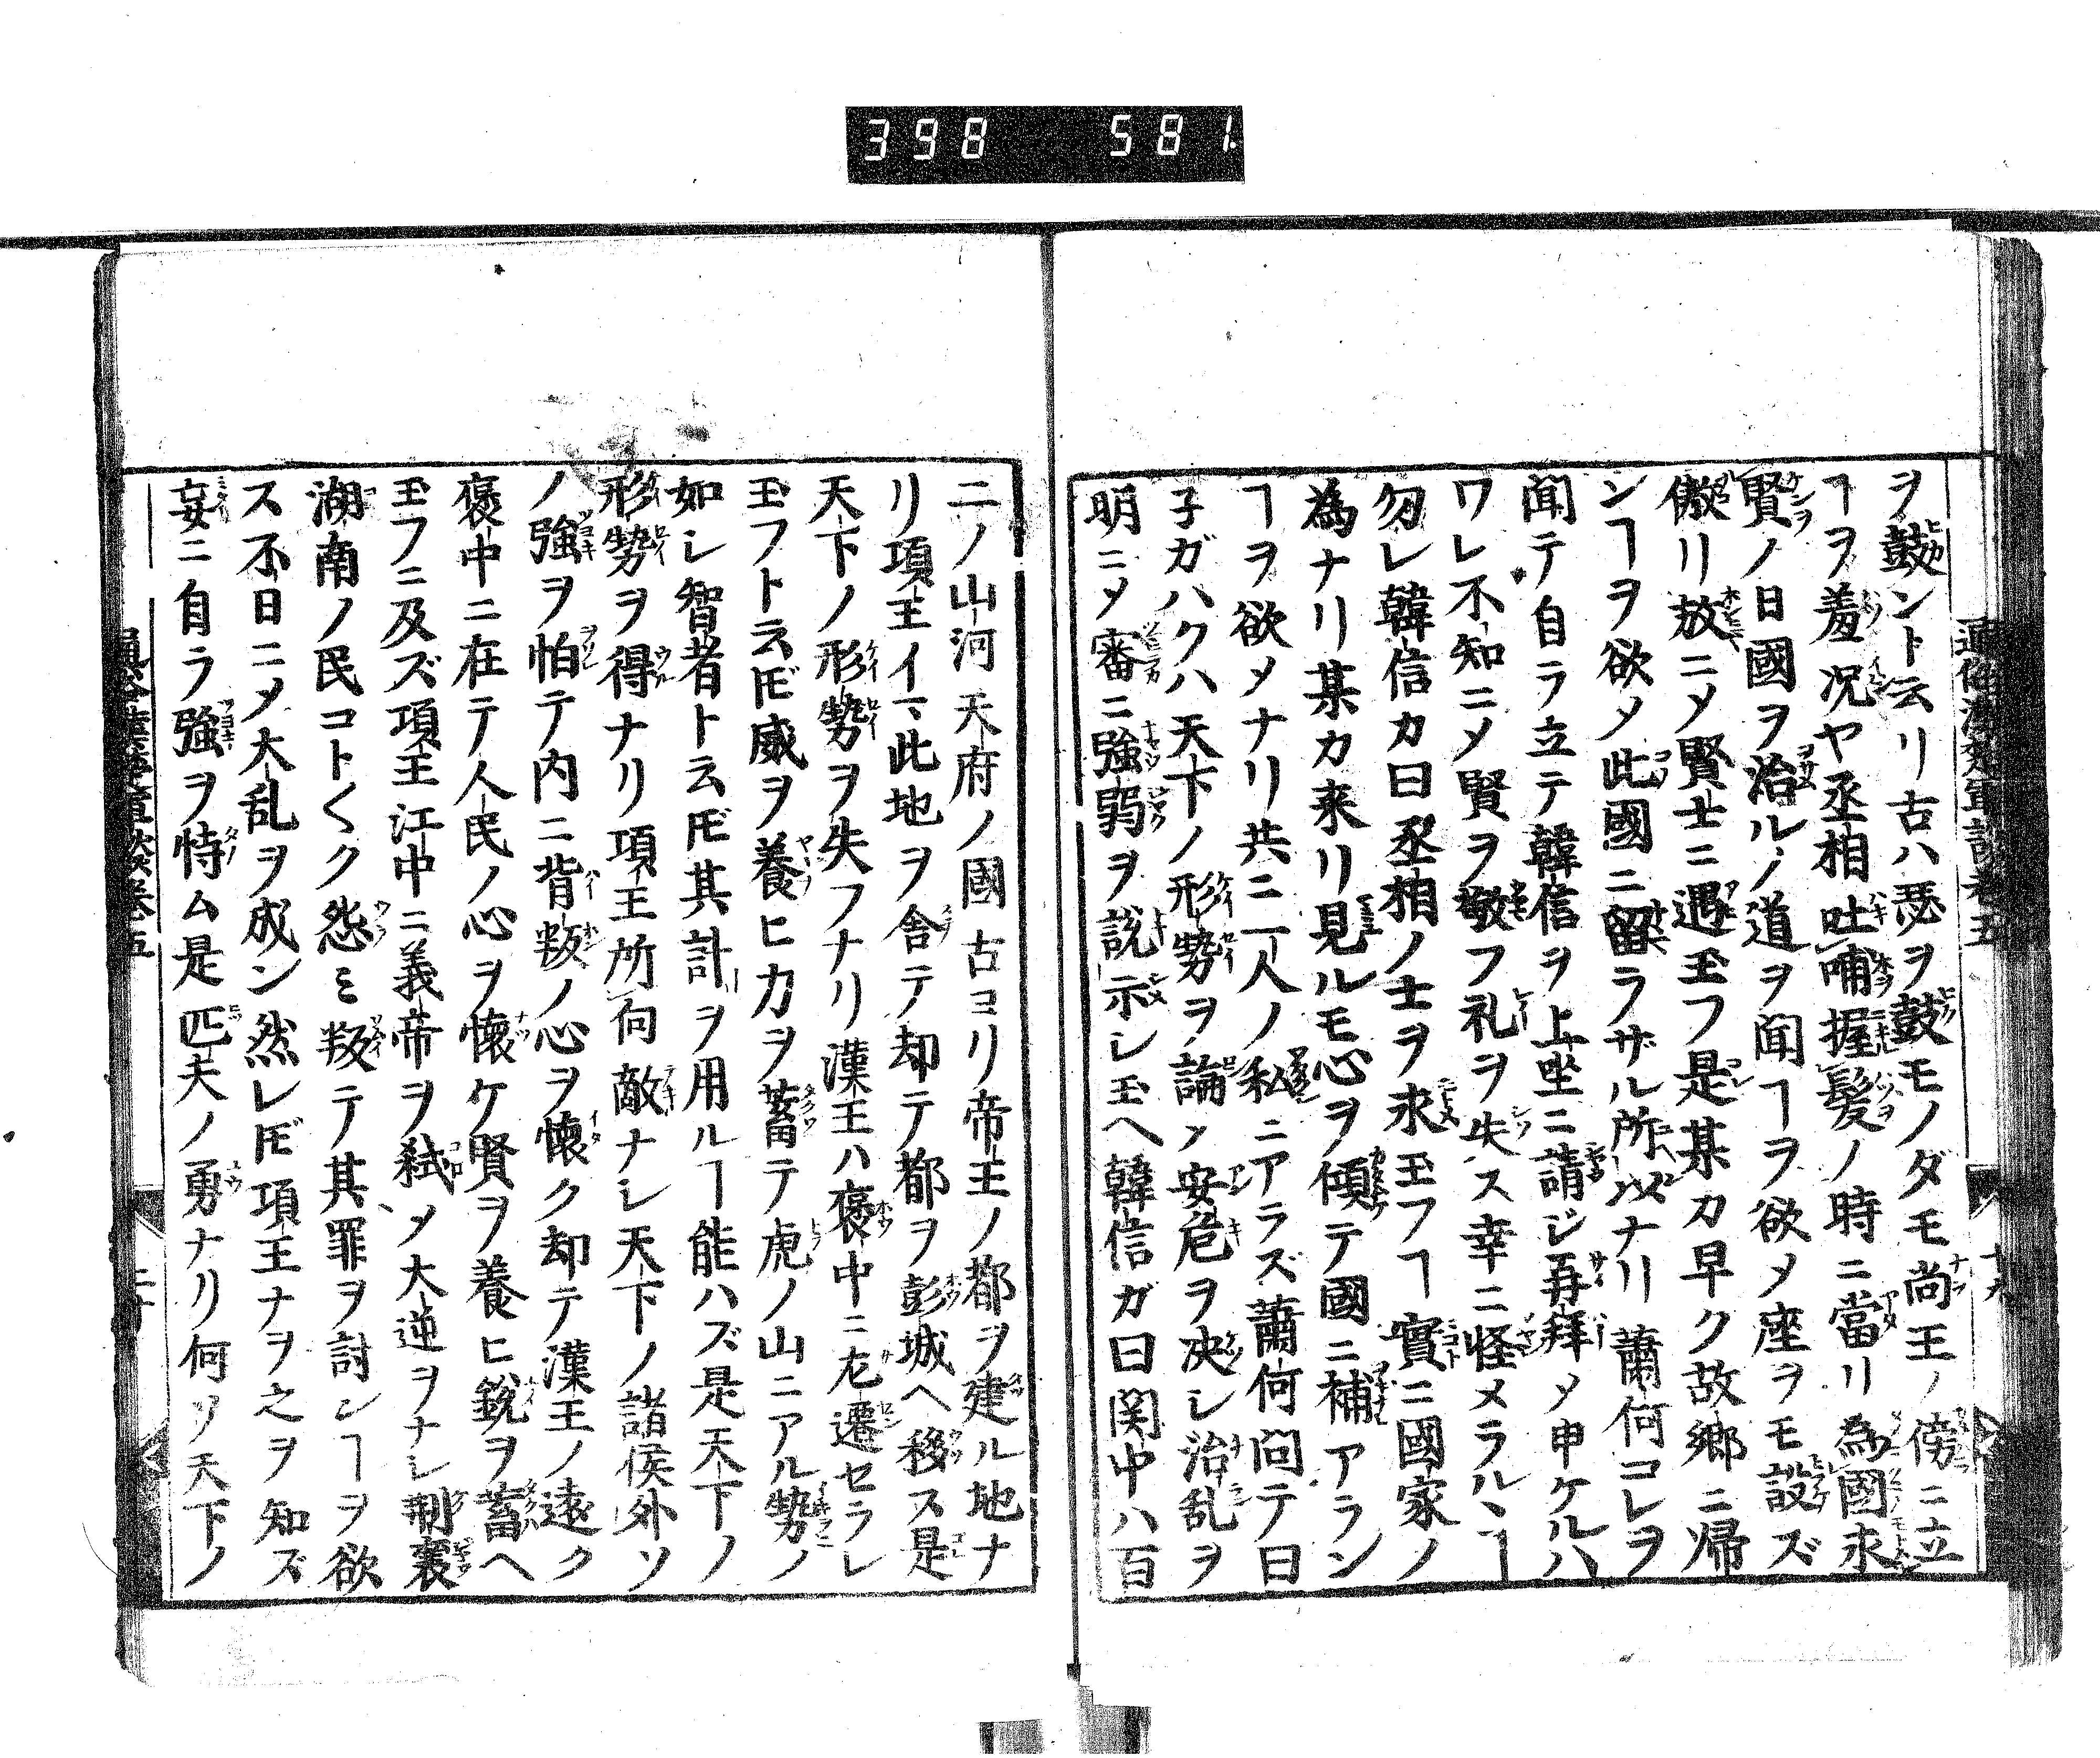 398 581
ヲ鼓ント云リ古ハ瑟ヲ鼓モノダモ尚王ノ傍ニ立
ヿヲ羞況ヤ丞相吐哺握髪ノ時ニ當リ為國求
賢ノ日國ヲ治ルノ道ヲ聞ヿヲ欲メ座ヲモ設ズ
傲リ放ニメ賢士ニ遇玉フ是某カ早ク故郷ニ帰
ンヿヲ欲メ此國ニ留ラザル所以ナリ蕭何コレヲ
聞テ自ラ立テ韓信ヲ上坐ニ請ジ再拜メ申ケルハ
ワレ不知ニメ賢ヲ敬フ礼ヲ失ス幸ニ怪メラルヽヿ
勿レ韓信カ曰丞相ノ士ヲ求玉フヿ實ニ國家ノ
為ナリ某カ来リ見ルモ心ヲ傾テ國ニ補アラン
ヿヲ欲メナリ共ニ一人ノ私ニアラズ蕭何問テ曰
子ガハクハ天下ノ形勢ヲ論メ安危ヲ决シ治乱ヲ
明ニメ審ニ強弱ヲ説示シ玉ヘ韓信ガ曰関中ハ百
二ノ山河天府ノ國古ヨリ帝王ノ都ヲ建ル地ナ
リ項王イマ此地ヲ舎テ却テ都ヲ彭城ヘ移ス是
天下ノ形勢ヲ失フナリ漢王ハ褒中ニ左遷セラレ
玉フト云𪜈威ヲ養ヒ力ヲ蓄テ虎ノ山ニアル勢ノ
如シ智者ト云𪜈其計ヲ用ルヿ能ハズ是天下ノ
形勢ヲ得ナリ項王所向敵ナシ天下ノ諸侯外ソ
ノ強ヲ怕テ内ニ背叛ノ心ヲ懐ク却テ漢王ノ遠ク
褒中ニ在テ人民ノ心ヲ懐ケ賢ヲ養ヒ鋭ヲ蓄ヘ
玉フニ及ズ項王江中ニ義帝ヲ弑メ大逆ヲナシ荊襄
湖南ノ民コトくク怨ミ叛テ其罪ヲ討ンヿヲ欲
ス不日ニメ大乱ヲ成ン然レ𪜈項王ナヲ之ヲ知ズ
妄ニ自ラ強ヲ恃ム是匹夫ノ勇ナリ何ソ天下ノ